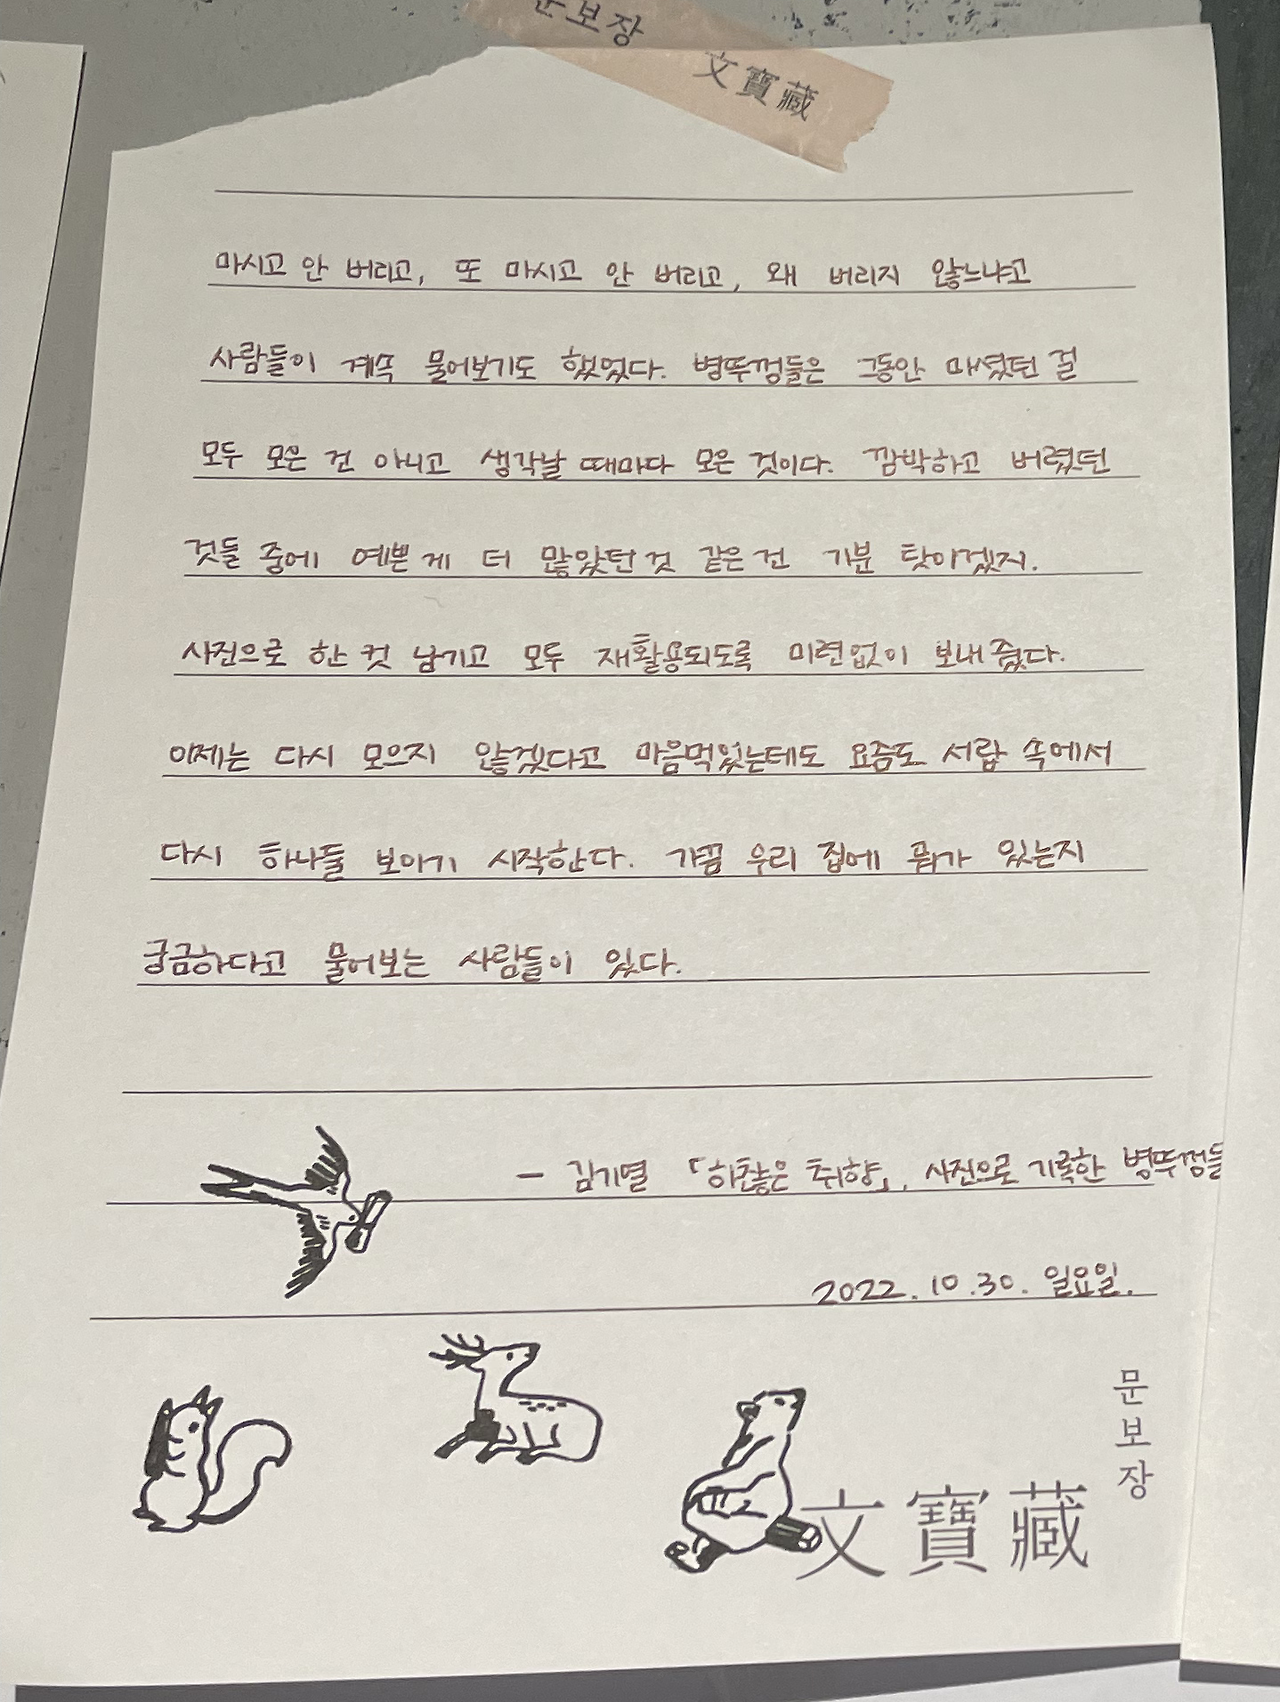 문보장 文寶藏
마시고 안 버리고, 또 마시고 안 버리고, 왜 버리지 않느냐고
사람들이 계속 물어보기도 했었다. 병뚜껑들은 그동안 마셨던 걸
모두 모은 건 아니고 생각날 때마다 모은 것이다. 깜박하고 버렸던
것들 중에 예쁜 게 더 많았던 것 같은 건 기분 탓이겠지.
사진으로 한 컷 남기고 모두 재활용되도록 미련없이 보내줬다.
이제는 다시 모으지 않겠다고 마음먹었는데도 요즘도 서랍 속에서
다시 하나둘 보이기 시작한다. 가끔 우리 집에 뭐가 있는지
궁금하다고 물어보는 사람들이 있다.
— 김기열 「하찮은 취향」, 사진으로 기록한 병뚜껑들
2022.10.30. 일요일.
문보장
文寶藏